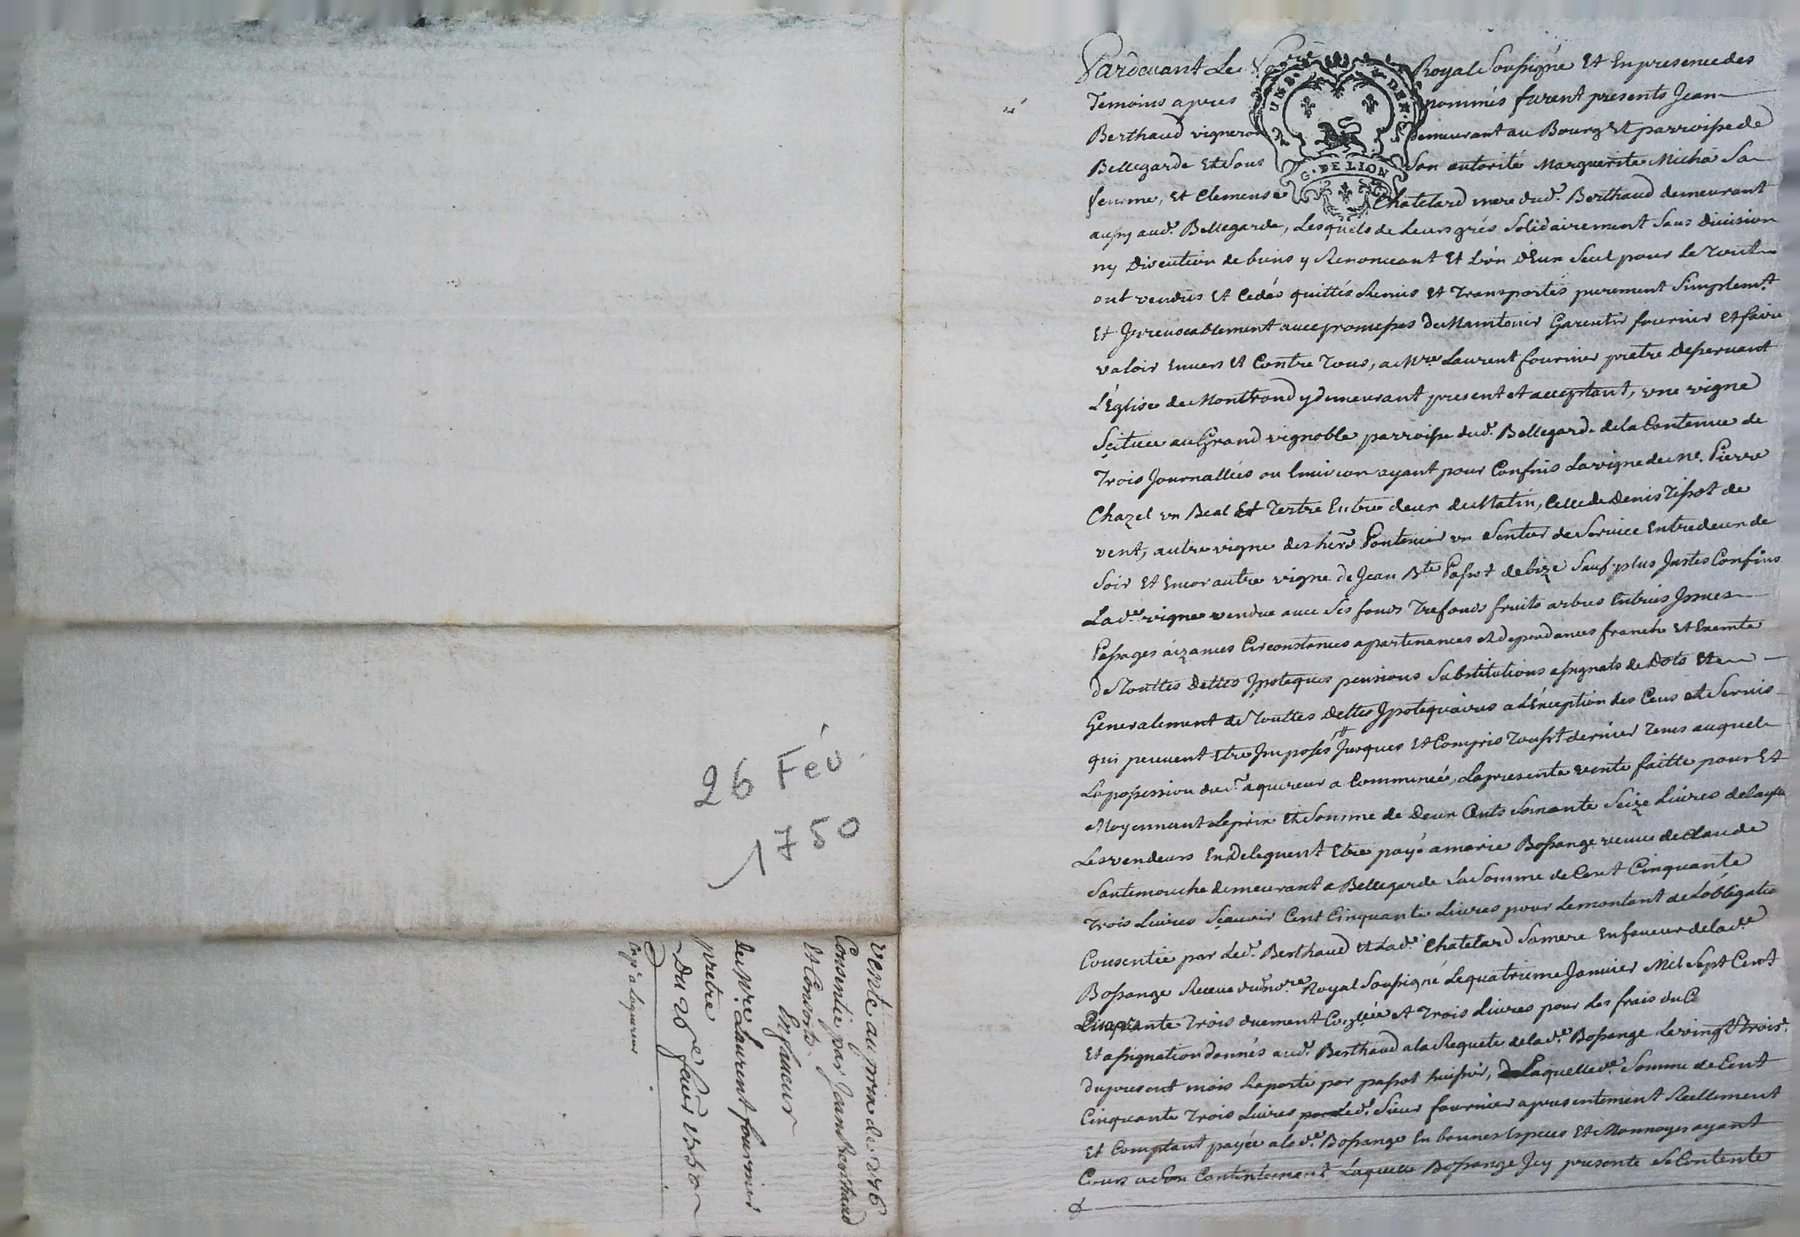 26 Fév
750
Vente au prix de: 276
Consentie par Jean Berthaud
Et Consorts
En faveur
de Mre Laurent fournier
pretre
Du 26e fevr 1750
Pardevant Le Royal Soussigné Et En presence des
Temoins apres nommés furent presents Jean
Berthaud vigneron demeurant au Bourg Et parroisse de
Bellegarde Et Sous Son autorité Marguerite Micha Sa
femme, Et Clemense Chatelard mere dud. Berthaud demeurant
aussy aud. Bellegarde, Lesquels de Leurs grés Solidairement Sans Division
ny Discution de biens y Renonceant Et L'un D'Eux Seul pour Le Tout
ont vendus Et Cedés quittés Remis Et Transportés purement Simplemt
Et Jrrevocablement avec promesses de Maintenir Garentir fournir Et faire
valoir Envers Et Contre Tous, a Mre Laurent fournier pretre Desservant
L'Eglise de Montrond y demeurant present et acceptant, une vigne
Scituee au Grand vignoble parroisse dud. Bellegarde de la Contenue de
Trois Journallées ou Environ ayant pour Confins La vigne de Me. Pierre
Chazel un Beal Et Tertre Entre deux de Matin, Celle de Denis Tissot de
vent, autre vigne des hers Pontenier un Sentier de Service Entredeux de
Soir Et Encor autre vigne de Jean Bte Passot de bize Sauf plus Justes Confins
Lade vigne vendue avec Ses fonds Trefonds fruits arbres Entrées Jssues
Passages aizances Circonstances apartenances et dependances franche Et Exempte
de Touttes Dettes Jpoteques pensions Substitutions assignats de Dots Et
Generalement de Touttes dettes Jpotequaires a L'Exception des Cens et Servis
qui peuvent Etre Jmposés Jusques Et Compris Toussts dernier Tems auquel
La possession dud. aquereur a Commencé, La presente vente faitte pour Et
Moyennant Le prix Et Somme de Deux Cents Soixante Seize Livres de laquelle
Les vendeurs En Deleguent Etre payé a marie Bossange veuve de Claude
Santemouche demeurant a Bellegarde La Somme de Cent Cinquante
Trois Livres Sçavoir Cent Cinquante Livres pour Le montant de L'obligation
Consentie par Led. Berthaud et Lad. Chatelard Sa mere En faveur de lade
Bossange Receue dud. nore Royal Soussigné Le quatrieme Janvier Mil Sept Cent
Cinquante Trois duement Conlée et Trois Livres pour Les frais du C
Et assignation donnés aud. Berthaud a la Requete de lade Bossange Le vingt Trois.
du present mois Raporté par passot huissier, Laquelle de Somme de Cent
Cinquante Trois Livres Led. Sieur fournier a presentement Reellement
Et Comptant payée a lade Bossange En bonnes Especes Et Monnoyes ayant
Cours a Son Contentement Laquelle Bossange Jcy presente Se Contente
G. DE LION